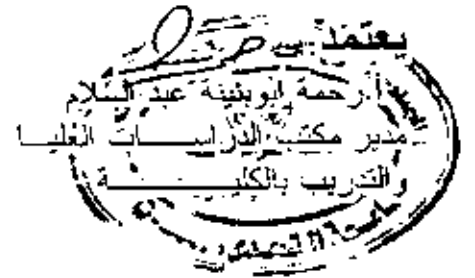 يعتمد
أ.رحمة ابوبنينة عبد السلام
مدير مكتب الدراســـات العليـا
التدريب بالكليــــــة